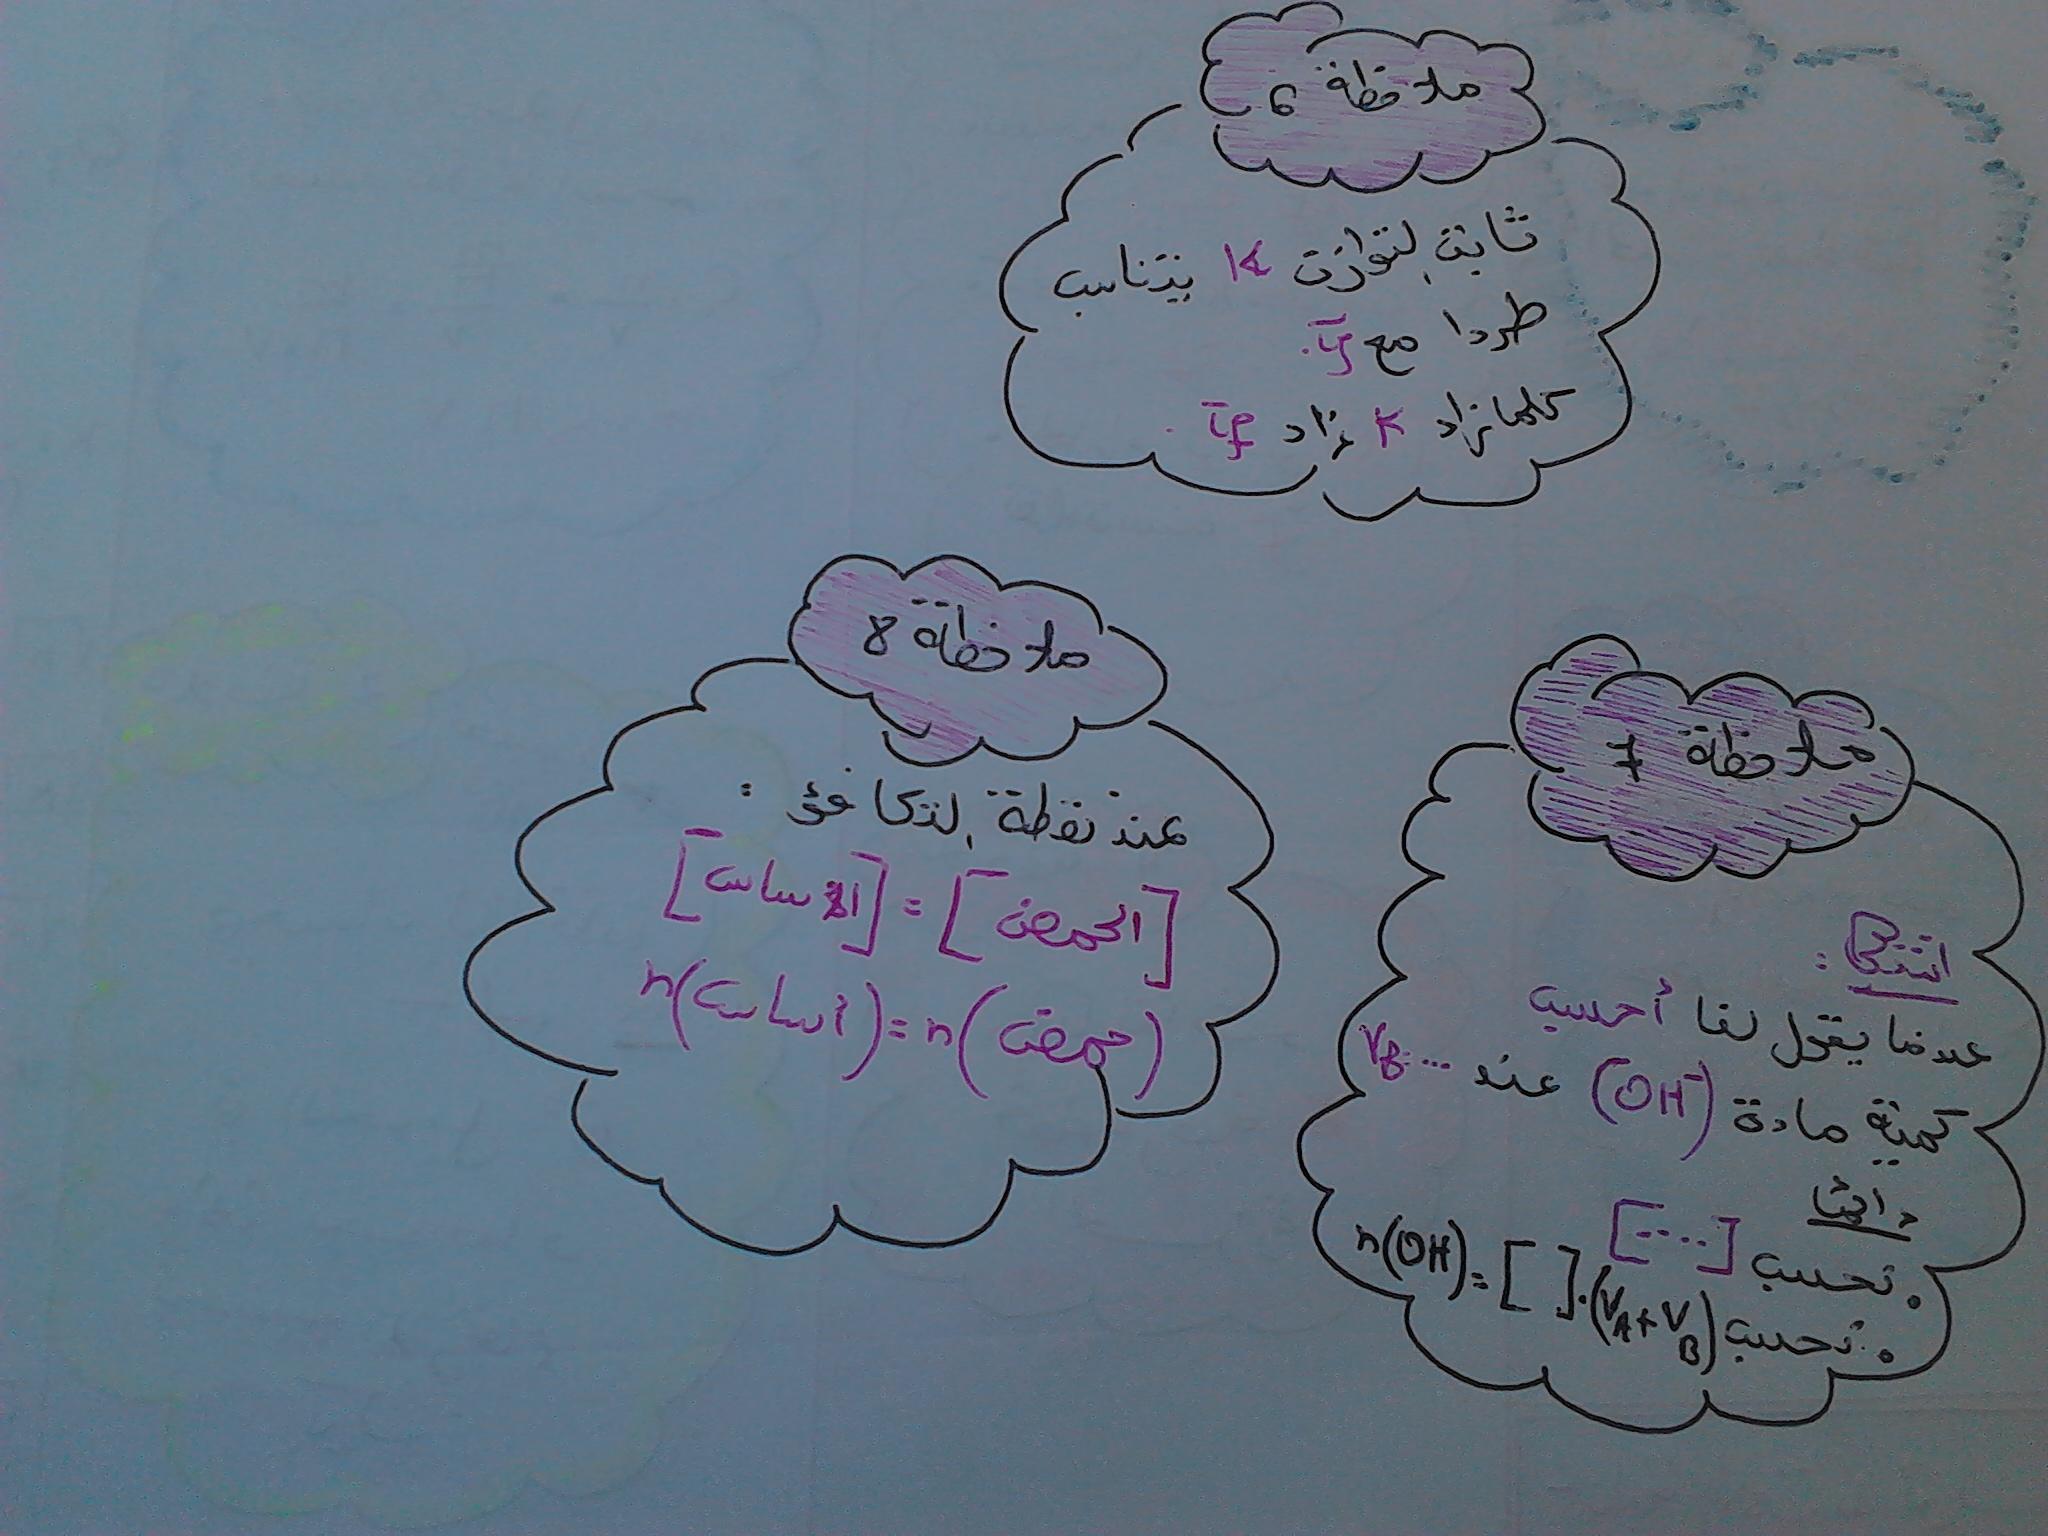 ملاحظة 6
ثابت التوازن K يتناسب
طردا مع τf.
كلما زاد K زاد τf.
ملاحظة 8
عند نقطة التكافؤ :
[الحمض] = [الأساس]
n(أساس) = n(حمض)
ملاحظة 7
انتبه :
عندما يقول لنا أحسب
كمية مادة (OH⁻) عند VB...
دائما
• نحسب [....]
• نحسب n(OH) = [ ].(VA+VB)